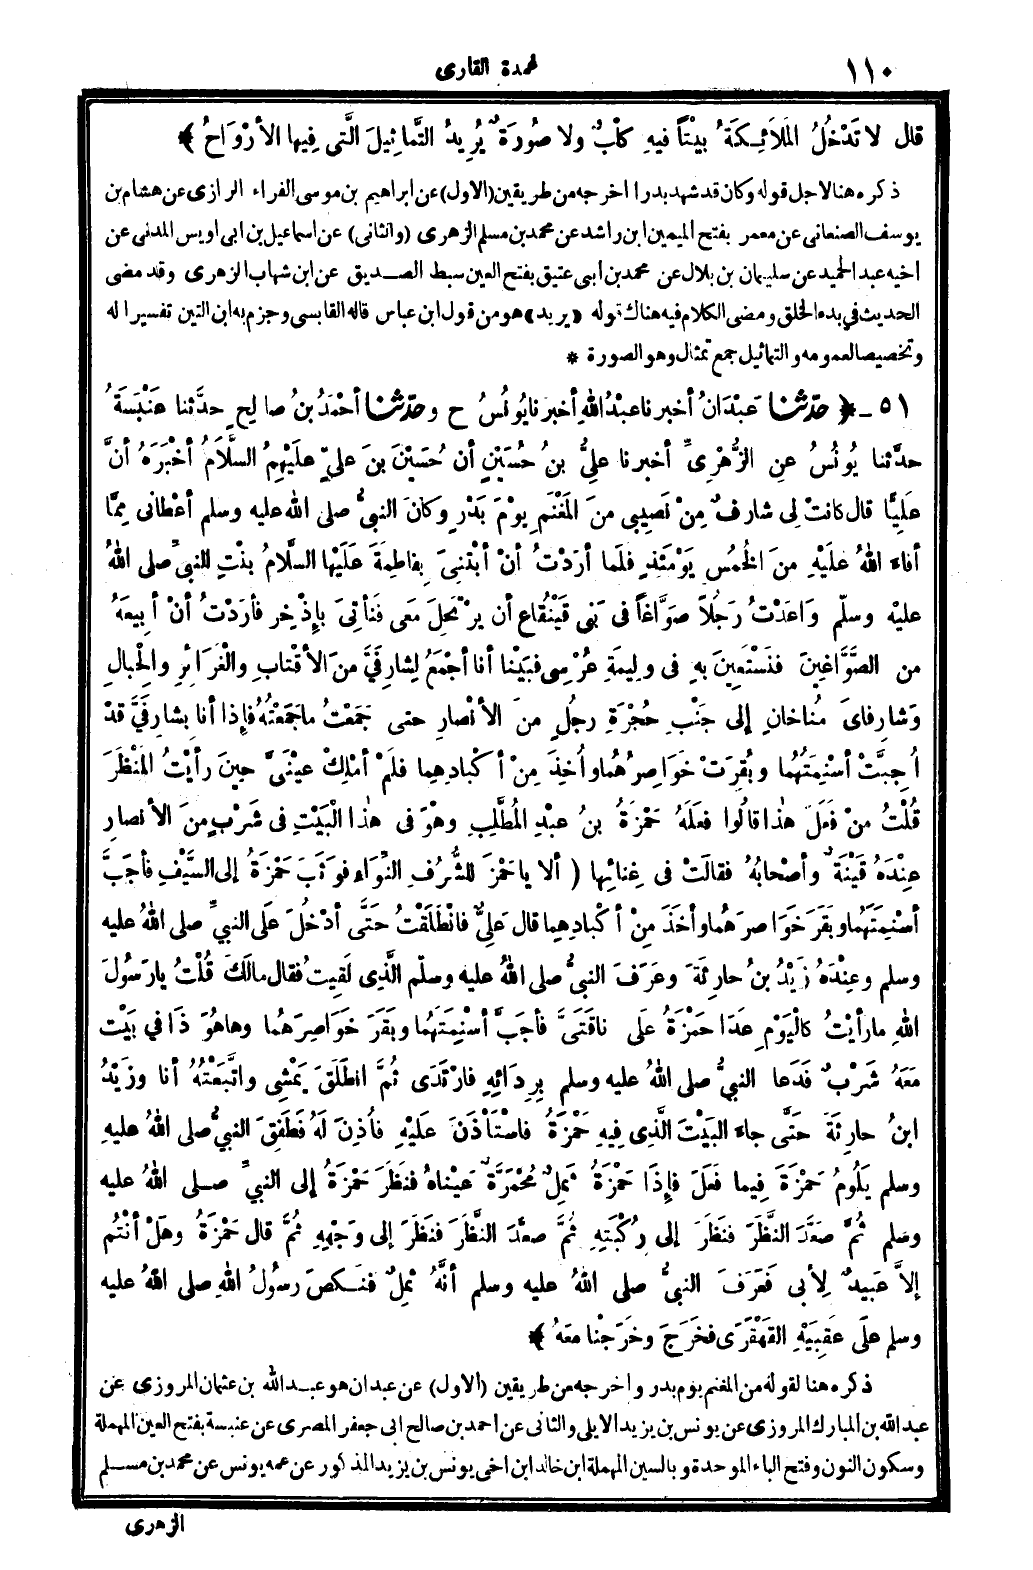 ١١٠
عمدة القارى
قال لا تَدْخُلُ المَلاَئِكَةُ بيْتَاً فيهِ كلْبٌ ولا صُورَةٌ يُرِيدُ التَّماثِيلَ الَّتى فِيها الأرْوَاحُ ﴾
ذكره هنا لاجل قوله وكان قد شهد بدرا اخرجه من طريقين (الاول) عن ابراهيم بن موسى الفراء الرازى عن هشام بن
يوسف الصنعانى عن معمر بفتح الميمين ابن راشد عن محمد بن مسلم الزهرى (والثانى) عن اسماعيل بن ابى اويس المدنى عن
اخيه عبد الحميد عن سليمان بن بلال عن محمد بن أبى عتيق بفتح العين سبط الصديق عن ابن شهاب الزهرى وقد مضى
الحديث في بدء الخلق ومضى الكلام فيه هناك قوله «يريد» هو من قول ابن عباس قاله القابسى وجزم به ابن التين تفسيرا له
وتخصيصا لعمومه والتماثيل جمع تمثال وهو الصورة *
٥١ - ﴿ حدّثنا عَبْدَانُ أخبرنا عبْدُ اللهِ أخبرنا يُونُسُ ح وحدّثنا أحْمَدُ بنُ صالِحٍ حدَّثنا عَنْبَسَةُ
حدَّثنا يُونُسُ عنِ الزُّهْرِىِّ أخبرنا علِىُّ بنُ حُسَيْنٍ أن حُسَيْنَ بنَ علىٍّ علَيْهِمُ السَّلاَمُ أخْبَرَهُ أنَّ
عَلِيَّا قال كانَتْ لِى شارِفٌ مِنْ نَصِيبِى منَ المَغْنَمِ يوْمَ بَدْرٍ وكانَ النبىُّ صلى اللهُ عليه وسلم أعْطانِى مِمَّا
أفاءَ اللهُ علَيْهِ منَ الخُمُسِ يَوْمَئِذٍ فلَمّا أرَدْتُ أنْ أبْتَنِىَ بِفاطِمَةَ عَلَيْها السَّلامُ بِنْتِ النبىِّ صلى اللهُ
عليْه وسلّم وَاعَدْتُ رَجُلاً صَوَّاغاً فى بَنى قَيْنُقاع أن يرْتَحِلَ مَعى فَنَأتِىَ بإِذْخِرٍ فأرَدْتُ أنْ أبِيعَهُ
من الصَّوَّاغِينَ فنَسْتَعِينَ بهِ فى ولِيمَةِ عُرْسِى فبَيْنا أنا أجْمَعُ لِشارِفَىَّ منَ الأقْتابِ والْغَرَائِرِ والْحِبالِ
وَشارِفاىَ مُناخانِ إلى جَنْبِ حُجْرَةِ رجُلٍ منَ الأنْصارِ حتى جَمَعْتُ ما جَمَعْتُهُ فإذا أنا بشارِفَىَّ قدْ
أُجِبَّتْ أسْنِمَتُهُما وبُقِرَتْ خَوَاصِرُهُما وأُخِذَ مِنْ أكْبادِهِما فلَمْ أمْلِكْ عيْنَىَّ حِينَ رأيْتُ المَنْظَرَ
قُلْتُ منْ فعَلَ هٰذا قالُوا فعَلَهُ حَمْزَةُ بنُ عبْدِ المُطَّلِبِ وهْوَ فى هٰذا الْبَيْتِ فى شَرْبٍ منَ الأنْصارِ
عِنْدَهُ قَيْنَةٌ وأصْحابُهُ فقالَتْ فى غِنائِها ( ألا يا حَمْزَ للشُّرُفِ النِّوَاءِ فوَثَبَ حَمْزَةُ إلى السَّيْفِ فأجَبَّ
أسْنِمَتَهُما وبقَرَ خَوَاصِرَهُما وأخَذَ مِنْ أكْبادِهِما قال عَلِىٌّ فانْطَلَقْتُ حَتَّى أدْخُلَ عَلَى النبىِّ صلى اللهُ عليه
وسلم وعِنْدَهُ زَيْدُ بنُ حارِثَةَ وعرَفَ النبىُّ صلى اللهُ عليه وسلّم الَّذِى لَقِيتُ فقال مالَكَ قُلْتُ يا رَسُولَ
اللهِ ما رأيْتُ كالْيَوْمِ عَدَا حَمْزَةُ علَى ناقَتَىَّ فأجَبَّ أسْنِمَتَهُما وبقَرَ خَوَاصِرَهُما وها هُوَ ذَا في بَيْت
مَعَهُ شَرْبٌ فَدَعا النبىُّ صلى اللهُ عليه وسلم بِرِدَائِهِ فارْتَدَى ثُمَّ انْطَلَقَ يَمْشِى واتَّبَعْتُهُ أنا وزَيْدُ
ابنُ حارِثَةَ حَتَّى جاءَ البَيْتَ الَّذِى فِيهِ حَمْزَةُ فاسْتَأذَنَ عَلَيْهِ فأُذِنَ لَهُ فَطَفِقَ النبىُّ صلى اللهُ عليهِ
وسلم يَلُومُ حَمْزَةَ فِيما فعَلَ فإِذَا حَمْزَةُ ثَمِلٌ مُحْمَرَّةٌ عَيْناهُ فنَظَرَ حَمْزَةُ إلى النبىِّ صلى اللهُ عليه
وسَلم ثُمَّ صَعَّدَ النَّظَرَ فنَظَرَ إلى رُكْبَتِهِ ثُمَّ صعَّدَ النَّظَرَ فنَظَرَ إلى وَجْهِهِ ثُمَّ قال حَمْزَةُ وهَلْ أنْتُم
إلاَّ عَبِيدٌ لِأبى فَعَرَفَ النبىُّ صلى اللهُ عليه وسلم أنَّهُ ثَمِلٌ فنَكَصَ رسُولُ اللهِ صلى اللهُ عليه
وسلم علَى عَقِبَيْهِ القَهْقَرَى فخَرَجَ وخَرَجْنا معَهُ ﴾
ذكره هنا لقوله من المغنم يوم بدر واخرجه من طريقين (الاول) عن عبدان هو عبد الله بن عثمان المروزى عن
عبد الله بن المبارك المروزى عن يونس بن يزيد الايلى والثانى عن احمد بن صالح ابى جعفر المصرى عن عنبسة بفتح العين المهملة
وسكون النون وفتح الباء الموحدة وبالسين المهملة ابن خالد ابن اخى يونس بن يزيد المذكور عن عمه يونس عن محمد بن مسلم
الزهرى